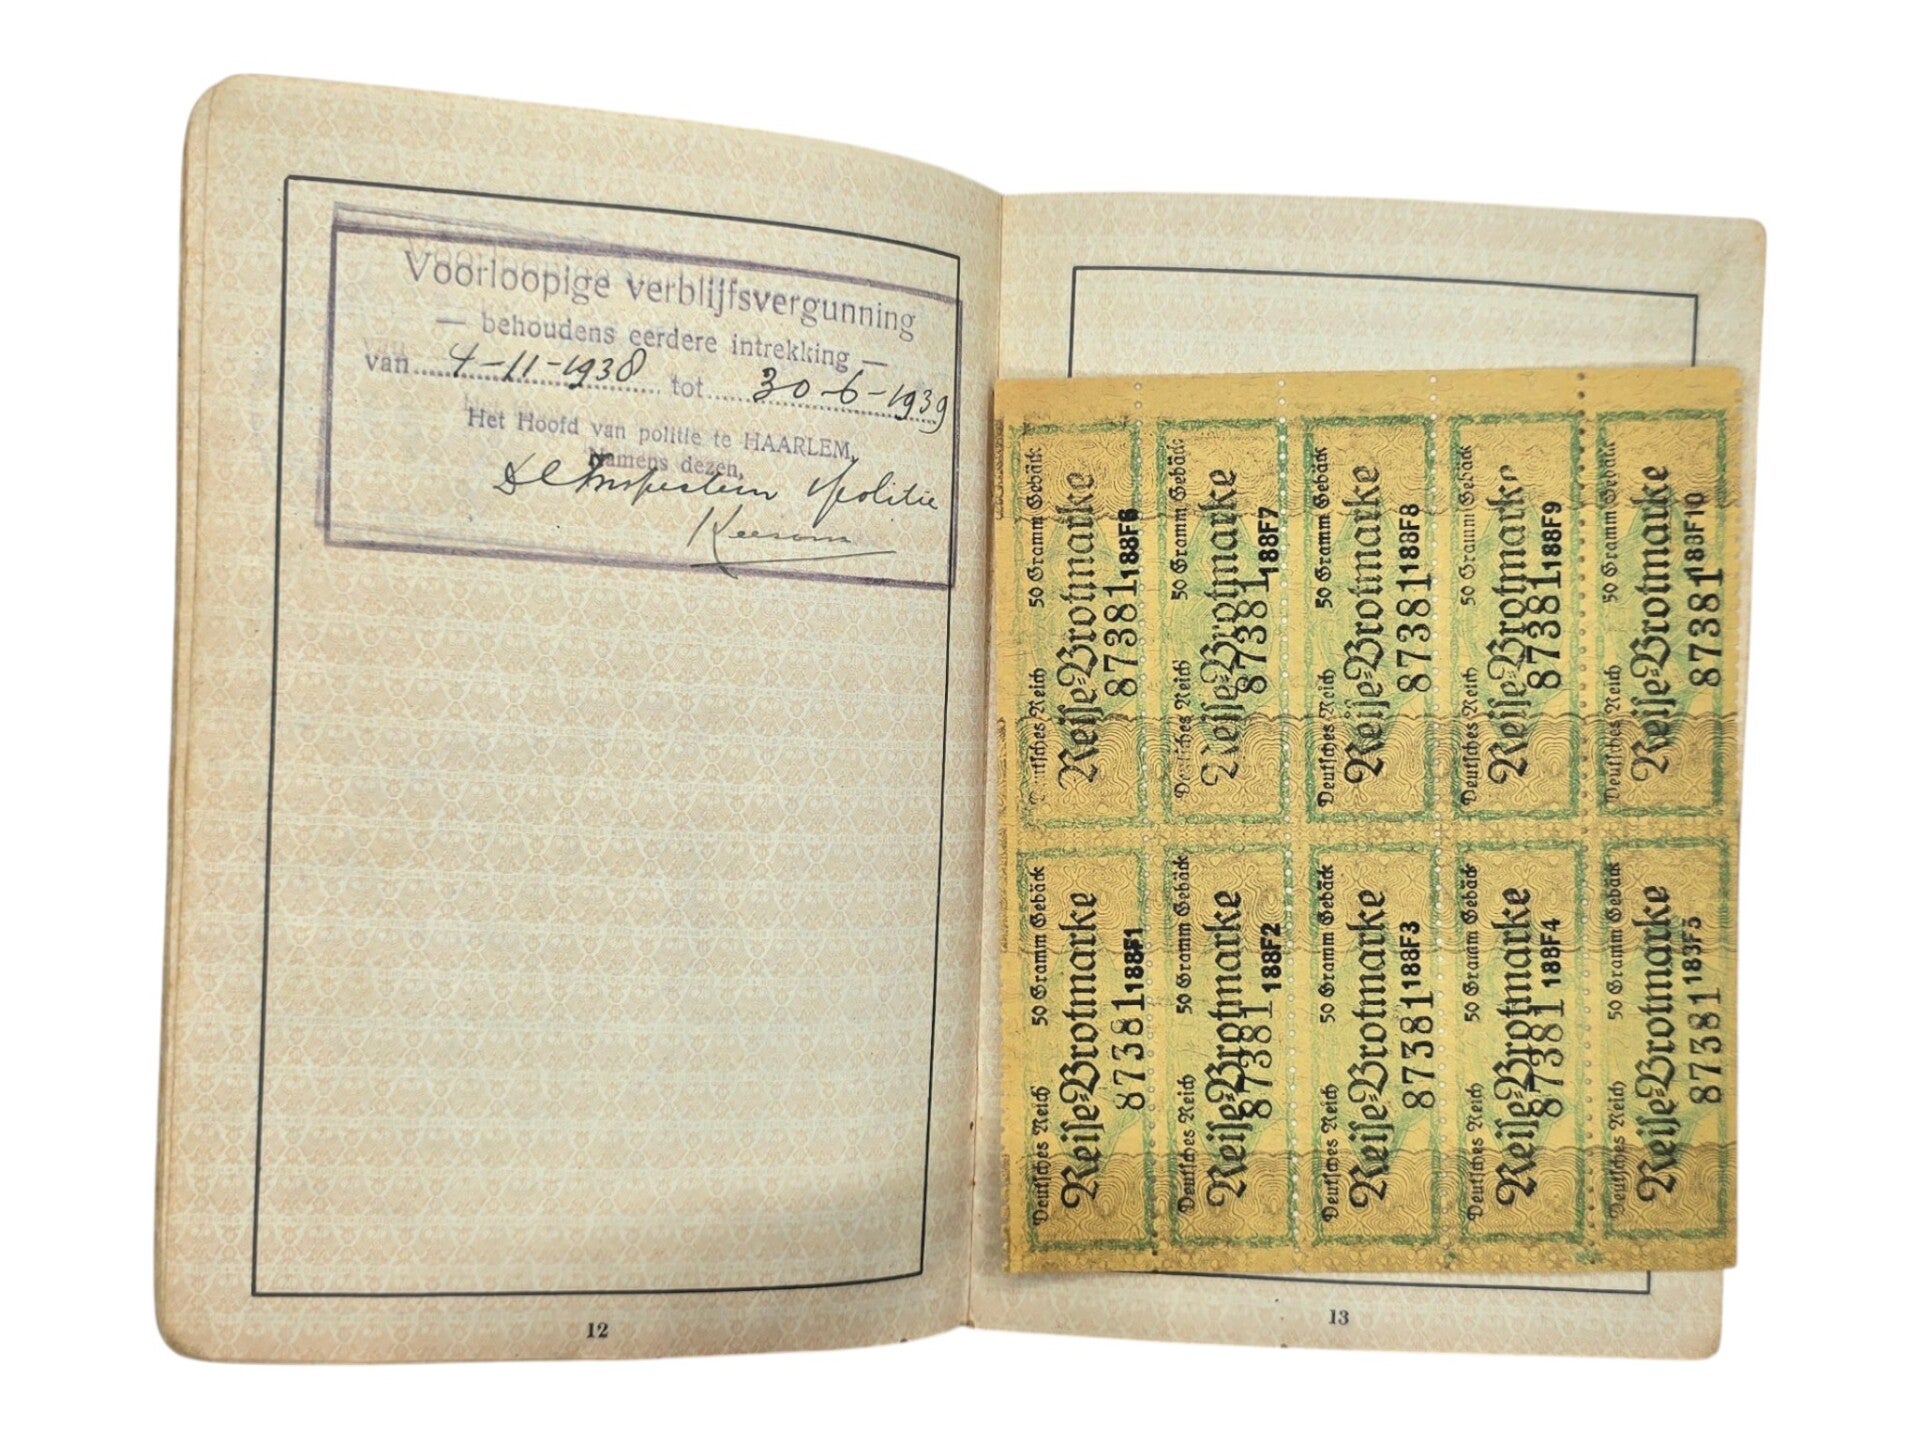 Voorloopige verblijfsvergunning
— behoudens eerdere intrekking —
van 4-11-1938 tot 30-6-1939
Het Hoofd van politie te HAARLEM,
Namens dezen,
politie
12
50 Gramm Gebäck
Deutsches Reich
Reise-Brotmarke
87381 188F6
50 Gramm Gebäck
Deutsches Reich
Reise-Brotmarke
87381 188F7
50 Gramm Gebäck
Deutsches Reich
Reise-Brotmarke
87381 188F8
50 Gramm Gebäck
Deutsches Reich
Reise-Brotmarke
87381 188F9
50 Gramm Gebäck
Deutsches Reich
Reise-Brotmarke
87381 188F10
50 Gramm Gebäck
Deutsches Reich
Reise-Brotmarke
87381 188F1
50 Gramm Gebäck
Deutsches Reich
Reise-Brotmarke
87381 188F2
50 Gramm Gebäck
Deutsches Reich
Reise-Brotmarke
87381 188F3
50 Gramm Gebäck
Deutsches Reich
Reise-Brotmarke
87381 188F4
50 Gramm Gebäck
Deutsches Reich
Reise-Brotmarke
87381 188F5
13